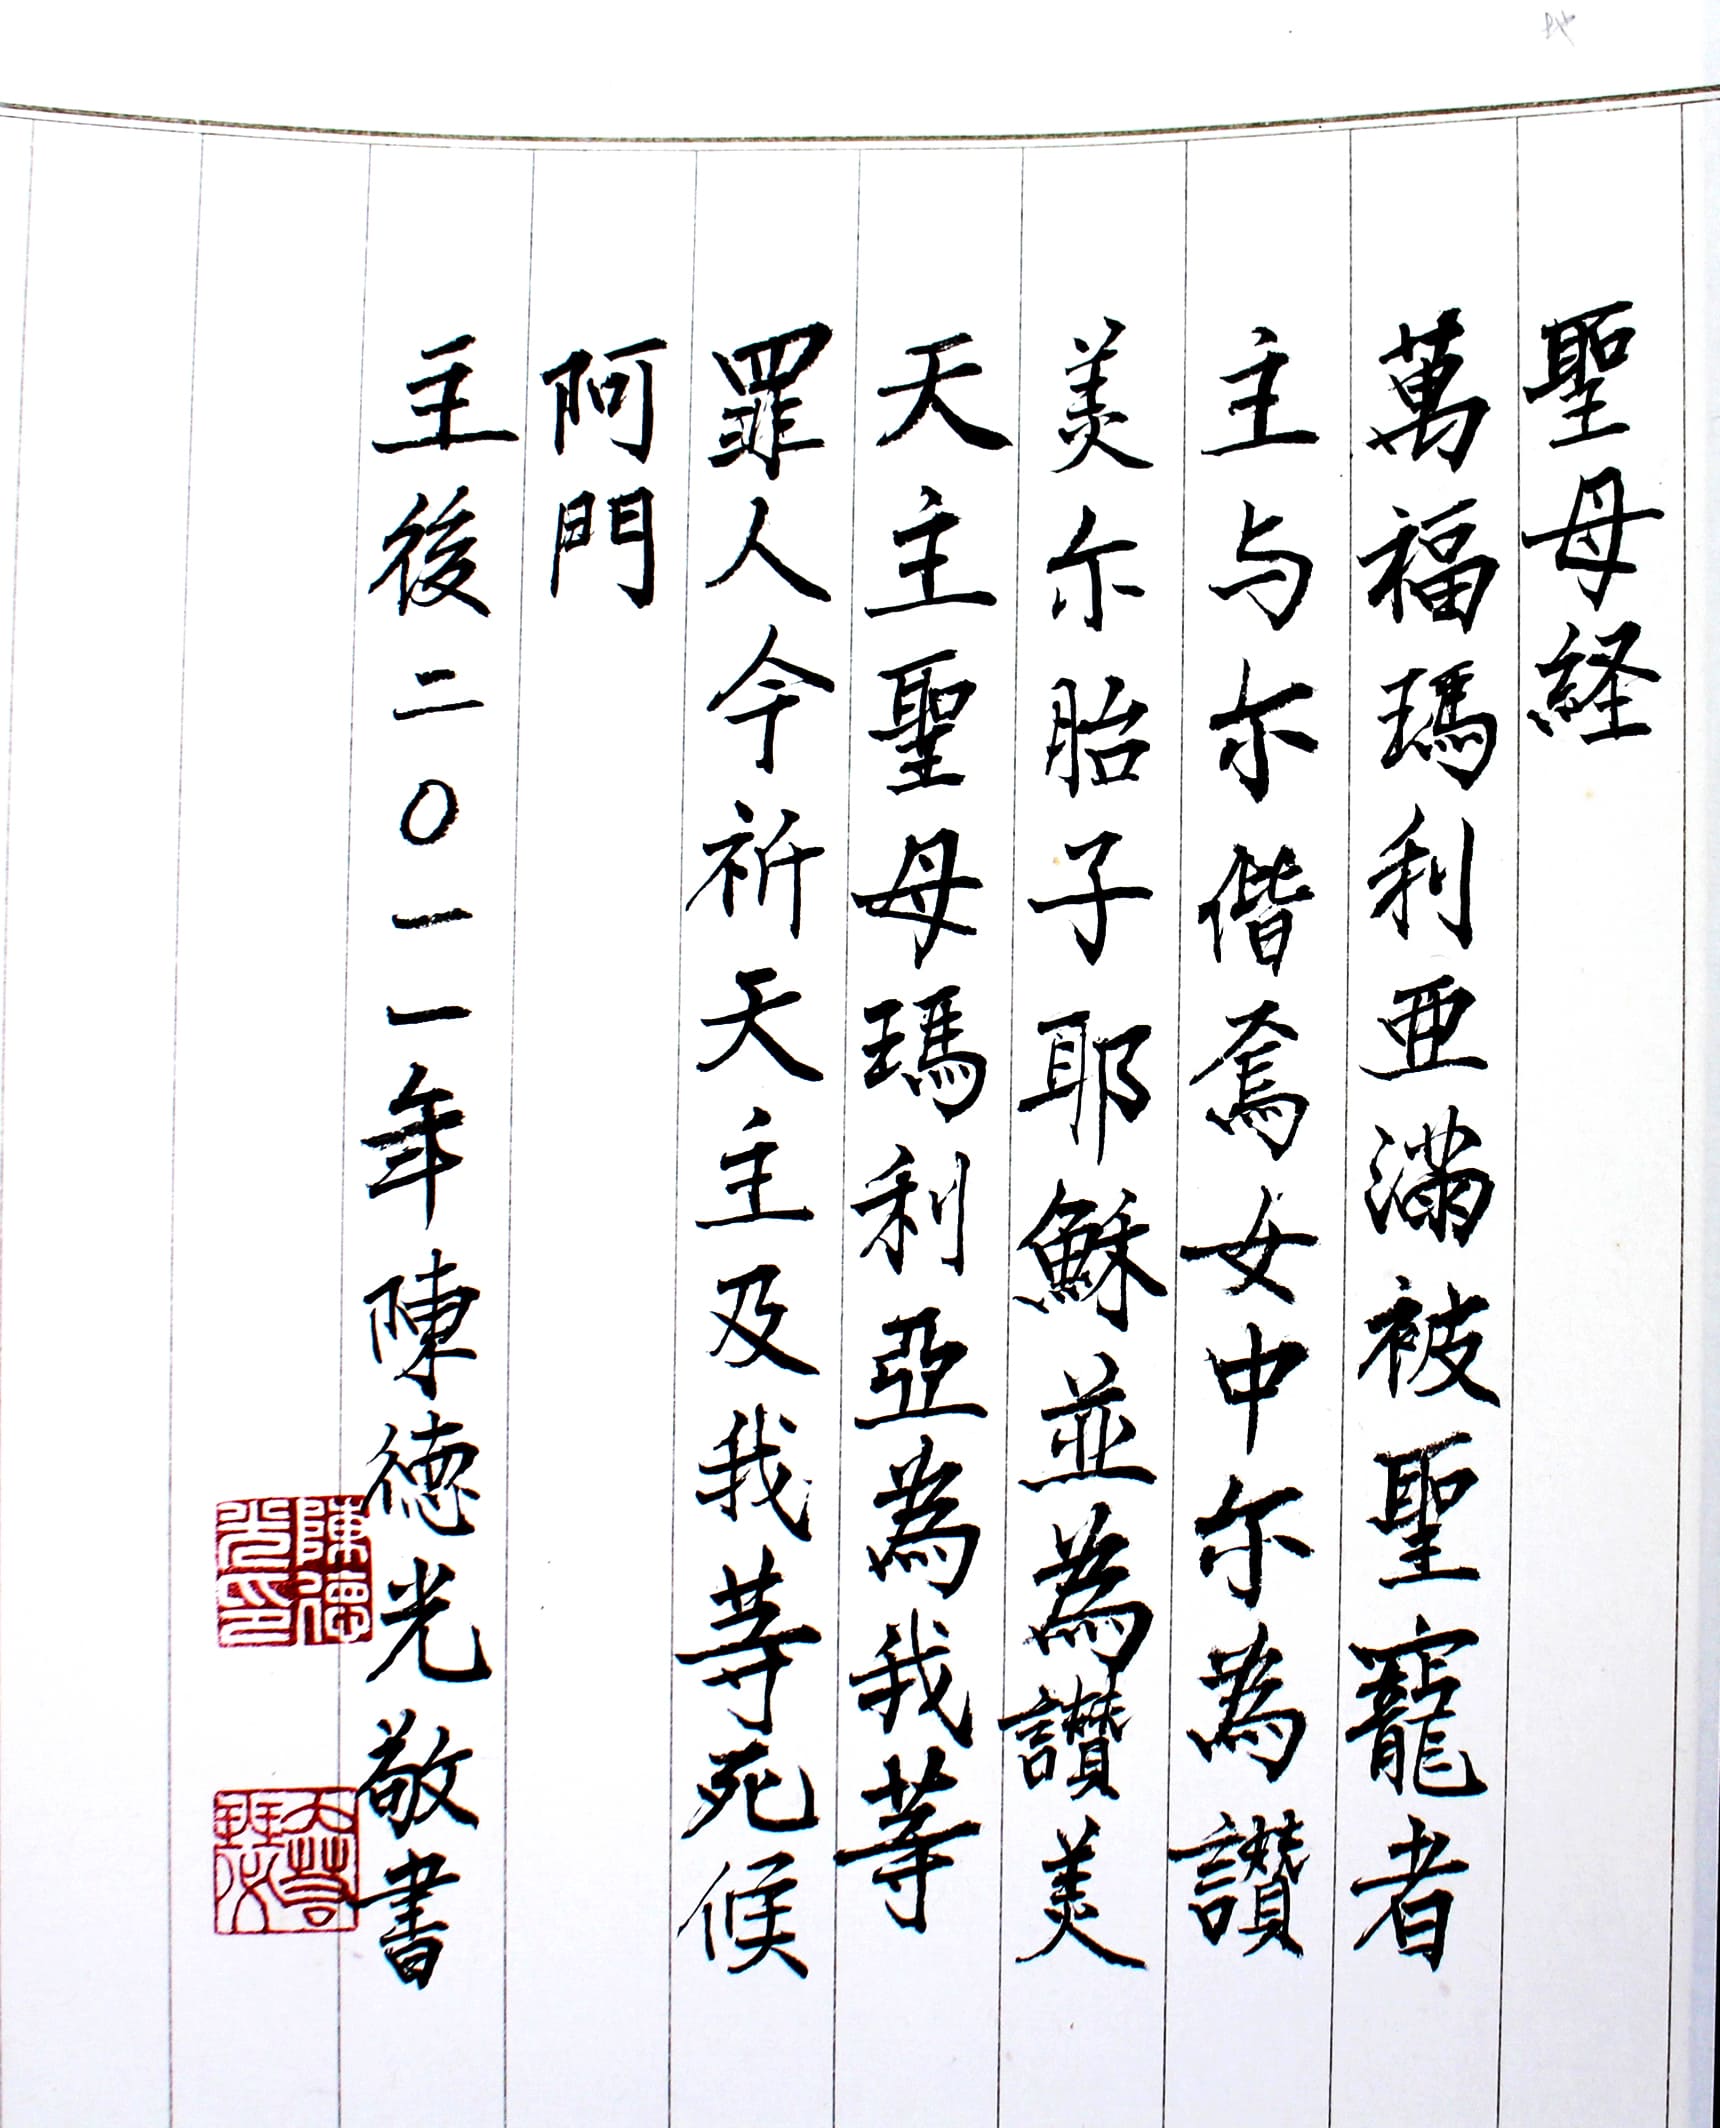 聖母経
萬福瑪利亜滿被聖寵者
主与尔偕焉女中尔為讚
美尔胎子耶穌並為讚美
天主聖母瑪利亞為我等
罪人今祈天主及我等死候
阿門
主後二〇一一年陳徳光敬書
陳德光印